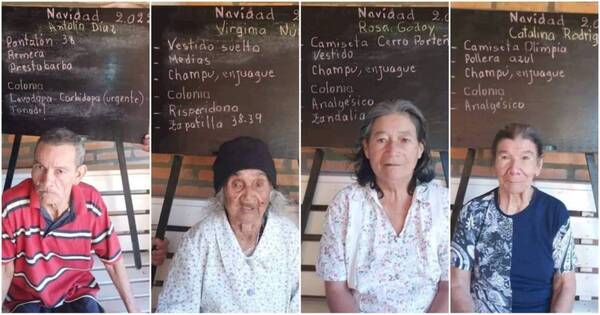 Navidad 2.022
Antolín Díaz
Pantalón 38
Remera
Prestobarba
Colonia
Levodopa Carbidopa (urgente)
Navidad 2.0
Virginia
- Vestido suelto
- Medias
- Champú, enjuague
- Colonia
- Risperidona
- Zapatilla 38.39
Navidad 2.02
Rosa Godoy
- Camiseta Cerro Porteño
Vestido
- Champú, enjuague
- Colonia
- Analgésico
- Zandalia
Navidad
Catalina Rodríg
- Camiseta Olimpia
- Pollera azul
- Champú, enjuague
- Colonia
- Analgésico